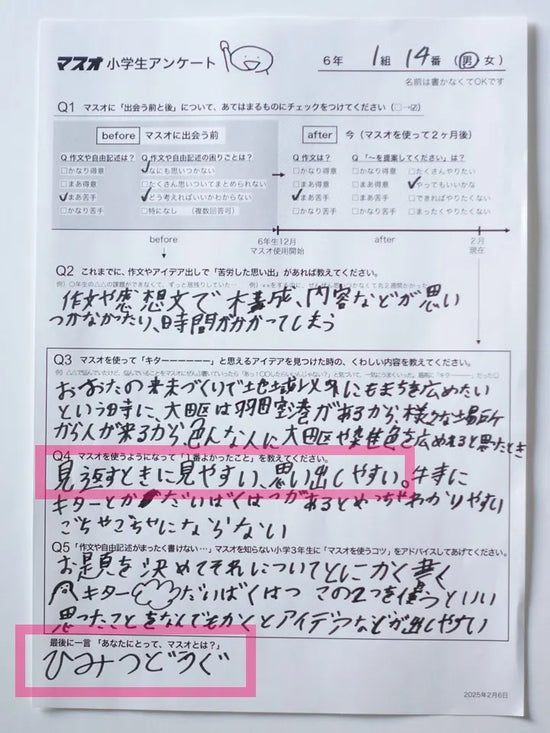 マスオ 小学生アンケート
6年 1組 14番 (男)女)
名前は書かなくてOKです
Q1 マスオに「出会う前と後」について、あてはまるものにチェックをつけてください（□→☑）
before マスオに出会う前
after 今（マスオを使って2ヶ月後）
Q 作文や自由記述は？
□かなり得意
□まあ得意
☑まあ苦手
□かなり苦手
Q 作文や自由記述の困りごとは？
☑なにも思いつかない
□たくさん思いついてまとめられない
☑どう考えればいいかわからない
□特になし （複数回答可）
Q 作文は？
□かなり得意
□まあ得意
☑まあ苦手
□かなり苦手
Q 「〜を提案してください」は？
□たくさんやりたい
☑やってもいいかな
□できればやりたくない
□まったくやりたくない
before
6年生12月
マスオ使用開始
after
2月
現在
Q2 これまでに、作文やアイデア出しで「苦労した思い出」があれば教えてください。
作文や感想文で構成、内容などが思い
つかなかったり、時間がかかってしまう
Q3 マスオを使って「キターーーーーー」と思えるアイデアを見つけた時の、くわしい内容を教えてください。
おおたの未来づくりで地域以外にもまちを広めたい
という時に、大田区は羽田空港があるから、様々な場所
から人が来るから、色んな人に大田区や特色を広めれると思ったとき
Q4 マスオを使うようになって「1番よかったこと」を教えてください。
見返すときに見やすい、思い出しやすい。特に
キターとかだいばくはつがあるとめっちゃわかりやすい
ごちゃごちゃにならない
Q5 「作文や自由記述がまったく書けない…」マスオを知らない小学3年生に「マスオを使うコツ」をアドバイスしてあげてください。
お題を決めてそれについてとにかく書く
キター だいばくはつ この2つを使うといい
思ったことをなんでもかくとアイデアなどが出しやすい
最後に一言 「あなたにとって、マスオとは？」
ひみつどうぐ
2025年2月6日